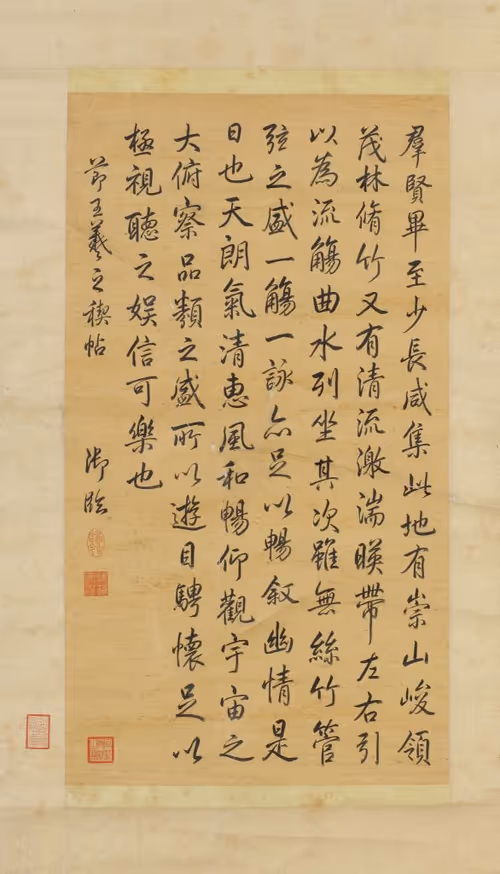 羣賢畢至少長咸集此地有崇山峻領
茂林脩竹又有清流激湍暎帶左右引
以為流觴曲水列坐其次雖無絲竹管
弦之盛一觴一詠亦足以暢叙幽情是
日也天朗氣清惠風和暢仰觀宇宙之
大俯察品類之盛所以遊目騁懷足以
極視聽之娛信可樂也
節王羲之禊帖
御臨